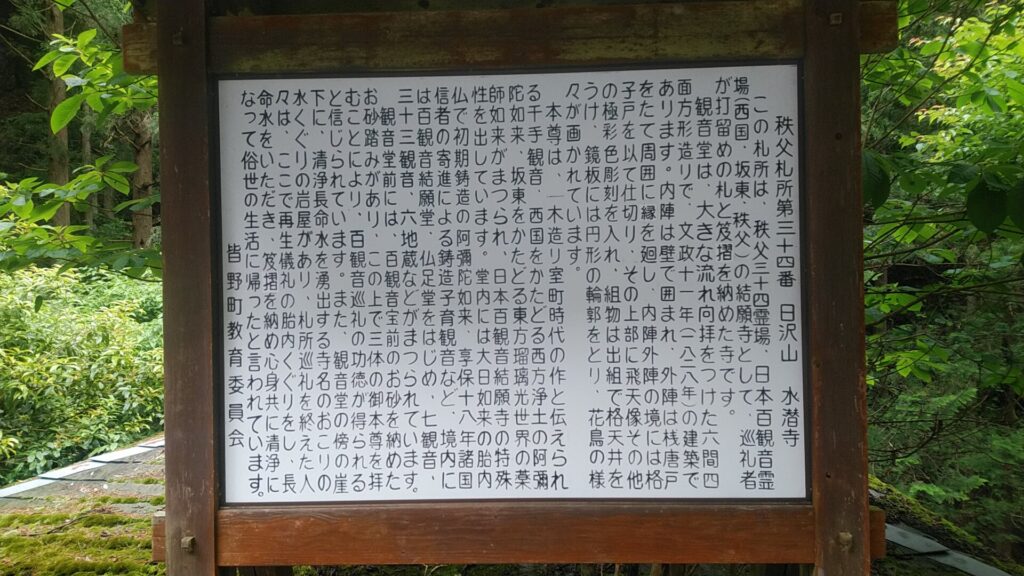 秩父札所第三十四番 日沢山 水潜寺
この札所は、秩父三十四霊場、日本百観音霊
場(西国、坂東、秩父)の結願寺として、巡礼者
が打留めの札と笈摺を納めた寺です。
観音堂は、大きな流れ向拝をつけた六間四
面方形造りで、文政十一年(一八二八年)の建築で
あります。内陣は壁で囲まれ、外陣は桟唐戸
をたて周囲に縁を廻し、内陣外陣の境には格
子戸を以て仕切り、その上部に飛天像その他
の極彩色彫刻を入れ、組物は出組で格天井を
うけ、鏡板には円形の輪郭をとり、花鳥の様
々が画かれています。
本尊は、一木造り室町時代の作と伝えられ
る千手観音、西国をかたどる西方浄土の阿彌
陀如来、坂東をかたどる東方瑠璃光世界の薬
師如来がまつられ、日本百観音結願寺の特殊
性を出しています。堂内には大日如来の胎内
仏で初期鋳造の阿彌陀如来、享保十八年諸国
信者の寄進による鋳造子育観音など、境内に
は百観音結願堂、仏足堂をはじめ、七観音、
三十三観音、六地蔵などがまつられています。
観音堂前には、百観音宝前のお砂を納めた
お砂踏みがあり、この上で三体の御本尊を拝
むことにより、百観音巡礼の功徳が得られる
と信じられています。また、観音堂の傍の崖
下に、清浄長命水を湧出する寺名のおこりの
水くぐりの岩屋があり、札所巡礼を終えた人
々は、ここで再生儀礼の胎内くぐりをし、長
命水をいただき、笈摺を納め心身共に清浄に
なって俗世の生活に帰ったと言われています。
皆野町教育委員会